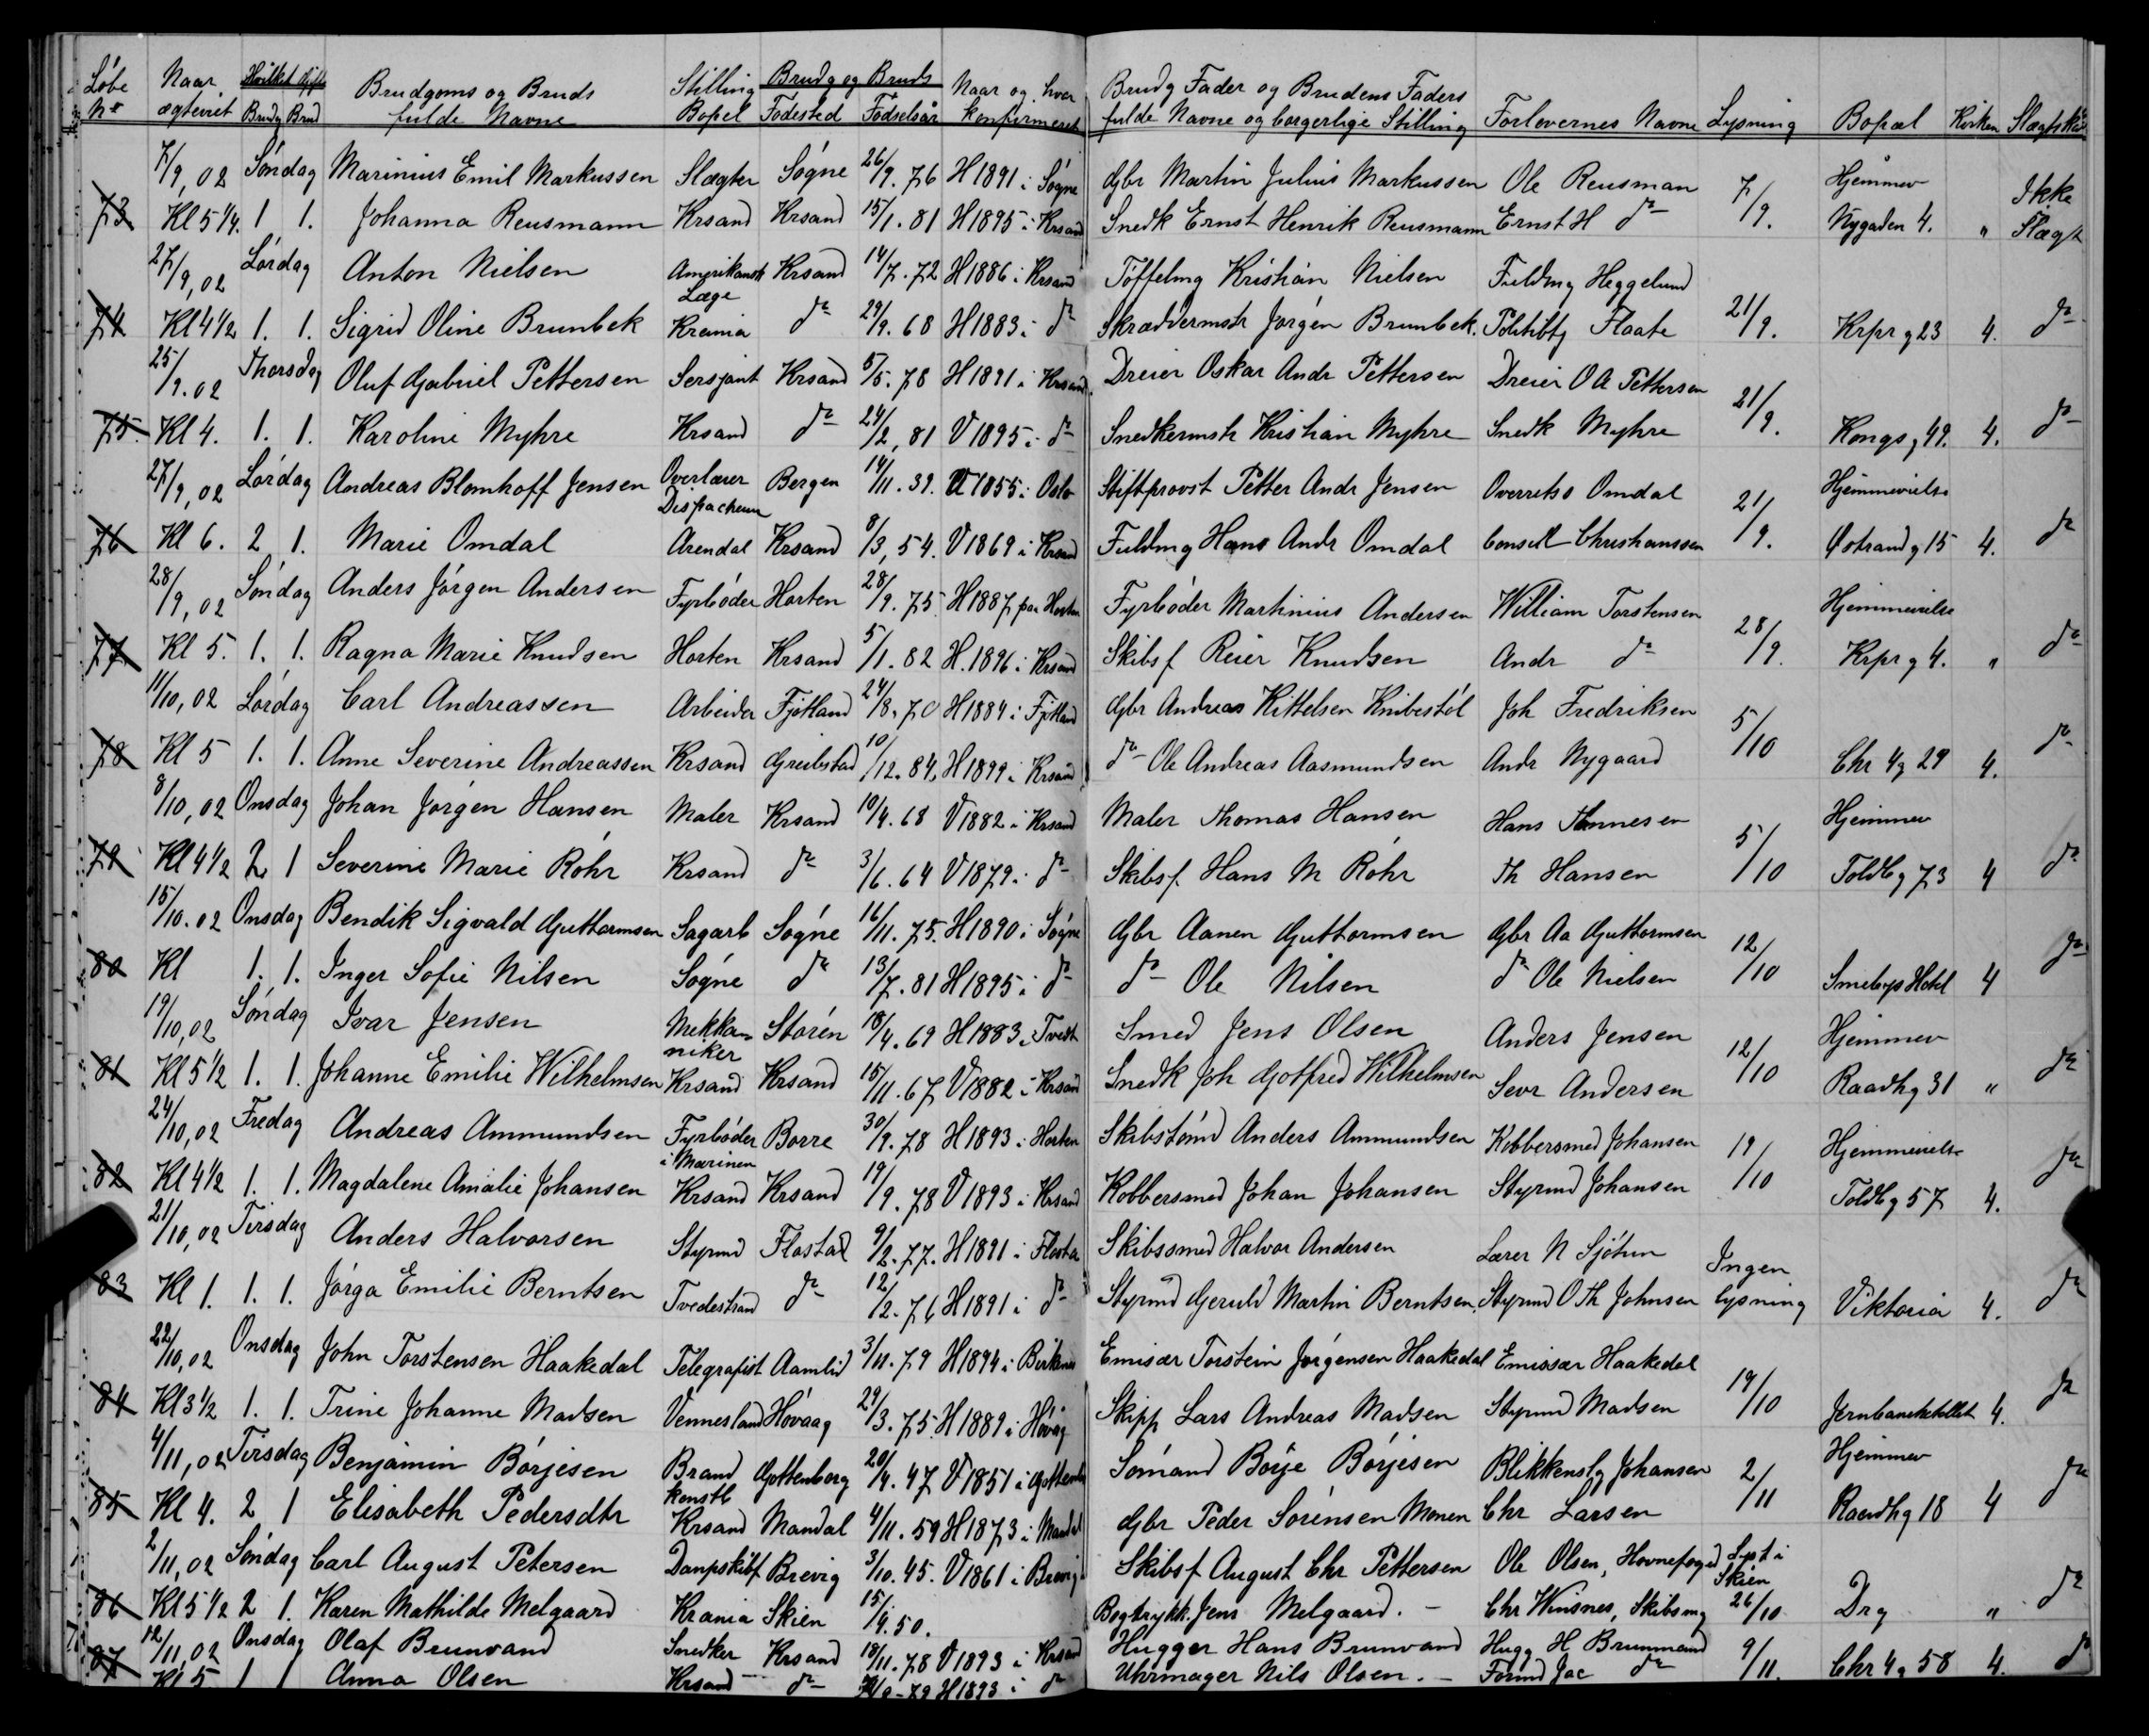 Løbe Naar Hvilket Gifte Brudgoms og Bruds Stilling Brudg og Bruds Naar og hvor Brudg Fader og Brudens Faders
No ægteviet Brudg Brud fulde Navne Bopel Fødested Fødselsår konfirmeret fulde Navne og borgerlige Stilling Forlovernes Navne Lysning Bopæl Kirken Slægtsk
7/9, 02 Søndag Marinius Emil Markussen Slagter Søgne 26/9. 76 H 1891 i Søgne Gbr Martin Julius Markussen Ole Reusman 7/9. Hjemmev Ikke
73 Kl 5 1/4. 1 1. Johanna Reusmann Krsand Krsand 15/1. 81 H 1895 i Krsand Snedk Ernst Henrik Reusmann Ernst H do Nygaden 4. " Slægt
27/9, 02 Lørdag Anton Nielsen Amerikansk Læge Krsand 14/7. 72 H 1886 i Krsand Tøffelmg Kristian Nielsen Fuldmg Heggelund 21/9.
74 Kl 4 1/2 1. 1. Sigrid Oline Brunbek Krania do 29/9. 68 H 1883 i do Skræddermstr Jørgen Brunbek. Politibtj Flaate Krpr g 23 4. do
25/9. 02 Thorsdag Oluf Gabriel Pettersen Sersjant Krsand 5/5. 78 H 1891 i Krsand Dreier Oskar Andr Pettersen Dreier O A Pettersen 21/9.
75. Kl 4. 1. 1. Karoline Myhre Krsand do 24/2, 81 V 1895 i do Snedkermstr Kristian Myhre Snedk Myhre Kongs g 49. 4. do
27/9, 02 Lørdag Andreas Blomhoff Jensen Overlærer Dispacheur Bergen 14/11. 39. 1855 i Oslo Stiftprovst Petter Andr Jensen Overrets Omdal 21/9. Hjemmevielse
76 Kl 6. 2 1. Marie Omdal Arendal Krsand 8/3, 54. V 1869 i Krsand Fuldmg Hans Andr Omdal Consul Christianssen Østrand g 15 4. do
28/9, 02 Søndag Anders Jørgen Andersen Fyrbøder Horten 28/9. 75. H 1887 paa Horten Fyrbøder Martinius Andersen William Torstensen 28/9. Hjemmevielse
77 Kl 5. 1. 1. Ragna Marie Knudsen Horten Krsand 5/1. 82 H. 1896 i Krsand Skibsf Reier Knudsen Andr do Krpr g 4. " do
11/10, 02 Lørdag Carl Andreassen Arbeider Fjotland 24/8. 70 H 1884 i Fjotland Gbr Andreas Kittelsen Knibestøl Joh Fredriksen 5/10
78 Kl 5 1. 1. Anne Severine Andreassen Krsand Greibstad 10/12. 84, H 1899 i Krsand do Ole Andreas Aasmundsen Andr Nygaard Chr 4 g 29 4. do
8/10, 02 Onsdag Johan Jørgen Hansen Maler Krsand 10/4. 68 V 1882 i Krsand Maler Thomas Hansen Hans Tønnesen 5/10 Hjemmev
79 Kl 4 1/2 2 1 Severine Marie Røhr Krsand do 3/6. 64 V 1879 i do Skibsf. Hans M Røhr Th Hansen Toldb g 73 4 do
15/10. 02 Onsdag Bendik Sigvald Guttormsen Sagarb Søgne 16/11. 75. H 1890 i Søgne Gbr Aanen Guttormsen Gbr Aa Guttormsen 12/10
80 Kl 1. 1. Inger Sofie Nilsen Søgne do 13/7. 81 H 1895 i do do Ole Nilsen do Ole Nielsen Smebys Hotel 4 do
19/10, 02 Søndag Ivar Jensen Mekkaniker Støren 18/4. 69 H 1883 i Tvedt Smed Jens Olsen Anders Jensen 12/10 Hjemmev
81 Kl 5 1/2 1. 1. Johanne Emilie Wilhelmsen Krsand Krsand 15/11. 67 V 1882 i Krsand Snedk Joh Gotfred Wilhelmsen Sevr Andersen Raadhg 31 " do
24/10, 02 Fredag Andreas Ammundsen Fyrbøder i Marinen Borre 30/9. 78 H 1893 i Horten Skibstømd Anders Ammundsen Kobbersmed Johansen 19/10 Hjemmevielse
82 Kl 4 1/2 1. 1. Magdalene Amalie Johansen Krsand Krsand 19/9. 78 V 1893 i Krsand Kobbersmed Johan Johansen Styrmd Johansen Toldb g 57 4. do
21/10, 02 Tirsdag Anders Halvorsen Styrmd Flostad 9/2. 77. H 1891 i Flosta Skibssmed Halvor Andersen Lærer N Sjøtun Ingen
83 Kl 1. 1. 1. Jørga Emilie Berntsen Tvedestrand do 12/2. 76 H 1891 i do Styrmd Geruld Martin Berntsen. Styrmd O Th Johnsen lysning Viktoria 4. do
22/10, 02 Onsdag John Torstensen Haakedal Telegrafist Aamlid 3/11. 79 H 1894 i Birknes Emisær Torstein Jørgensen Haakedal Emissær Haakedal 19/10
84 Kl 3 1/2 1. 1. Trine Johanne Madsen Vennesland Høvaag 29/3. 75. H 1889 i Høvåg Skipp Lars Andreas Madsen Styrmd Madsen Jernbanehotellet 4. do
4/11, 02 Tirsdag Benjamin Børjesen Brandkonstb Gottenborg 20/4. 47 V 1851 i Gottenb Sømand Børje Børjesen Blikkenslg Johansen 2/11 Hjemmev
85 Kl 4. 2 1 Elisabeth Pedersdtr Krsand Mandal 4/11. 59 H 1873 i Mandal Gbr Peder Sørensen Monen Chr Larsen Raadhg 18 4 do
2/11, 02 Søndag Carl August Petersen Dampskibf Brevig 3/10. 45. V 1861 i Brevig Skibsf August Chr Pettersen Ole Olsen, Havnefoged Lyst i Skien
86 Kl 5 1/2 2 1. Karen Mathilde Melgaard Krania Skien 15/4. 50. Bogtrykk. Jens Melgaard. - Chr Winsnes, Skibsmg 26/10 Drg " do
12/11, 02 Onsdag Olaf Brunvand Snedker Krsand 18/11. 78 V 1893 i Krsand Hugger Hans Brunvand Hugg H Brunvand 9/11. Chr 4 g 58 4. do
87 Kl 5 1 1 Anna Olsen Krsand do H 1893 i do Uhrmager Nils Olsen. - Formd Jac do